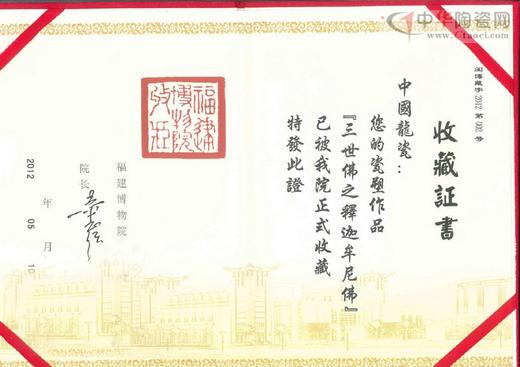 中华陶瓷网
www.Ctaoci.com
闽博藏字2012第002号
收藏証書
中國龍瓷：
您的瓷塑作品
『三世佛之釋迦牟尼佛』
已被我院正式收藏
特發此證
福建博物院
院长
2012年05月10